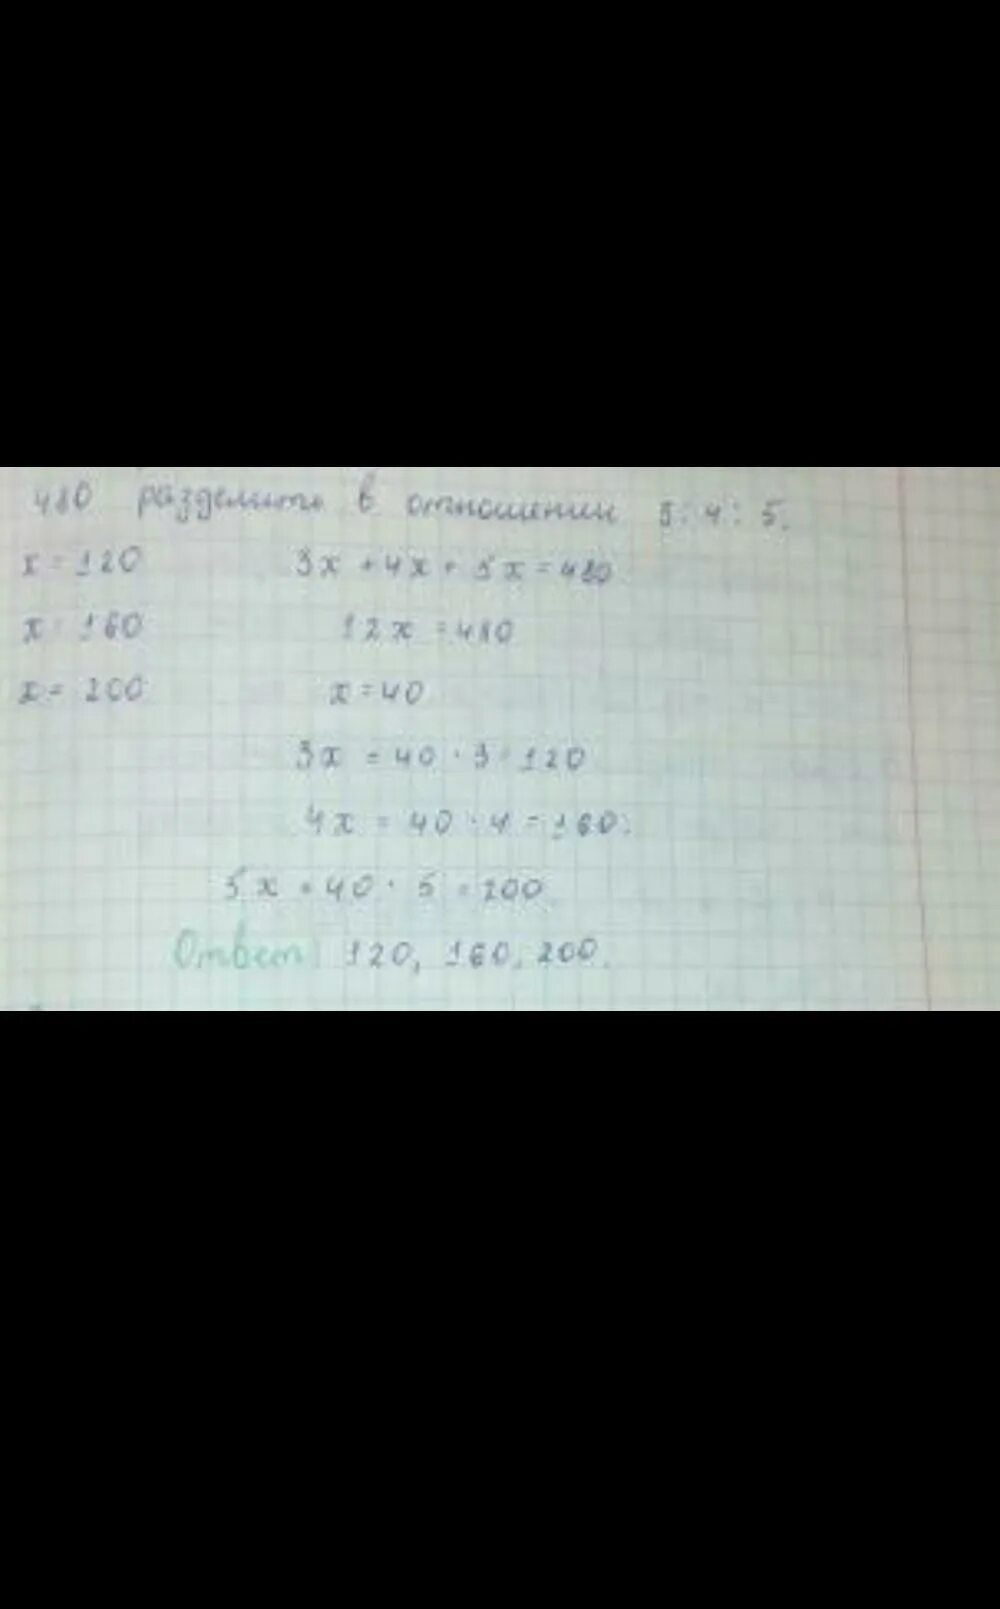 480 разделить в отношении 3:4:5.
x=120 3x+4x+5x=480
x=160 12x=480
x=200 x=40
3x=40·3=120
4x=40·4=160.
5x=40·5=200.
Ответ: 120, 160, 200.